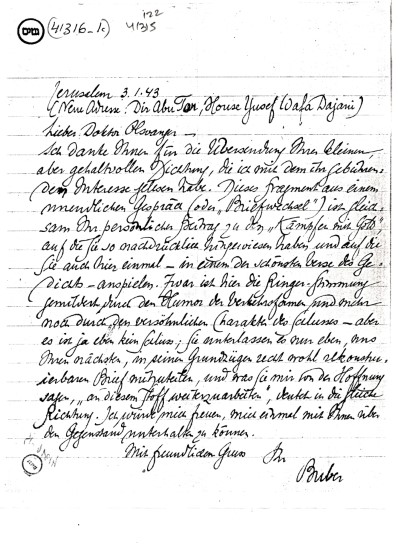 41316-1c
122
41315
Jerusalem 3.1.43
(Neue Adresse: Dir Abu Tor, House Yusef Wafa Dajani)
Lieber Doktor Olsvanger –
Ich danke Ihnen für die Übersendung Ihrer kleinen,
aber gehaltvollen Dichtung, die ich mit dem ihr gebühren-
dem Interesse gelesen habe. Dieses Fragment aus einem
unendlichen Gespräch (oder „Briefwechsel") ist gleich-
sam Ihr persönlicher Beitrag zu den „Kämpfen mit Gott",
auf die Sie so nachdrücklich hingewiesen haben und auf die
Sie auch hier einmal – in einem der schönsten Verse des Ge-
dichts – anspielen. Zwar ist hier die Ringer-Stimmung
gemildert durch den Humor der und mehr
noch durch den versöhnlichen Charakter des Schlusses – aber
es ist ja eben kein Schluss; Sie unterlassen es nur eben, uns
Ihren nächsten, in seinen Grundzügen recht wohl
Brief mitzuteilen, und was Sie mir von der Hoffnung
sagen, „an diesem Stoff weiterzuarbeiten", deutet in die gleiche
Richtung. Ich würde mich freuen, mich einmal mit Ihnen über
den Gegenstand unterhalten zu können.
Mit freundlichem Gruss
Ihr
Buber